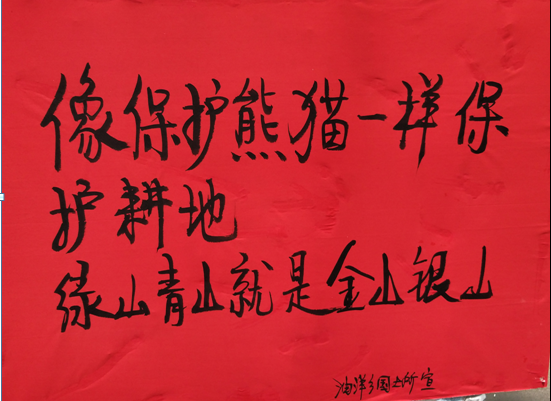 像保护熊猫一样保
护耕地
绿山青山就是金山银山
海洋乡国土所宣